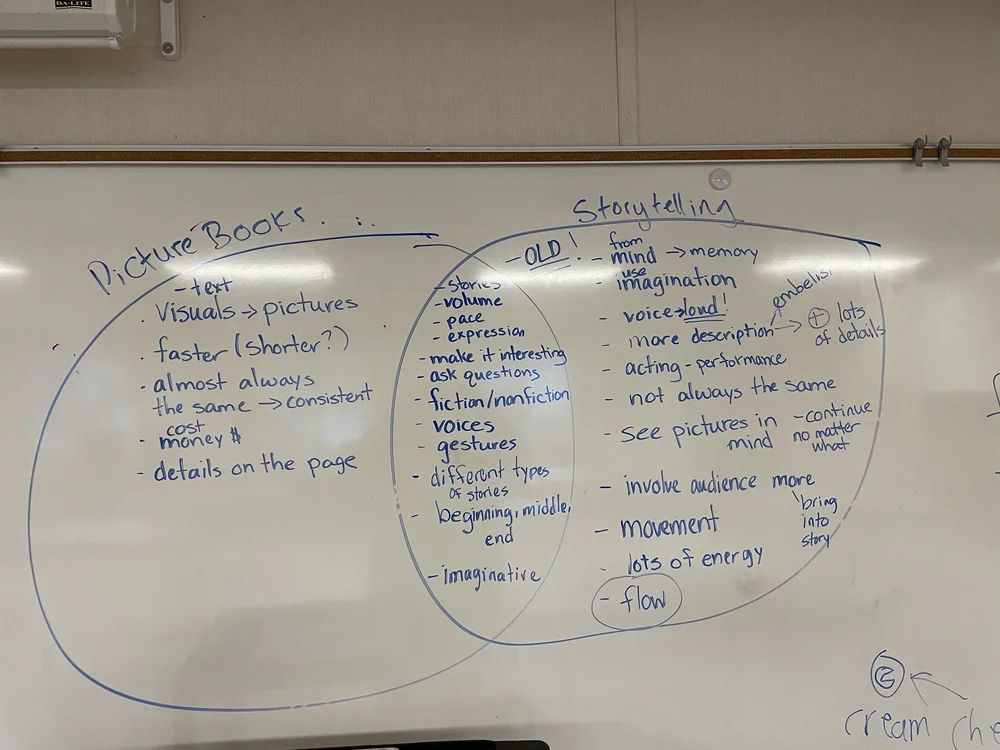 DA-LITE
Picture Books...
- text
. Visuals → pictures
. faster (shorter?)
. almost always
the same → consistent
cost
- money $
- details on the page
- stories
- volume
- pace
- expression
- make it interesting
- ask questions
- fiction/nonfiction
- voices
- gestures
- different types
of stories
- beginning, middle,
end
- imaginative
Storytelling
- OLD!
from
- mind → memory
use
- imagination
- voice → loud!
- more description → + lots
of details
- acting - performance
- not always the same
- see pictures in
mind
- continue
no matter
what
- involve audience more
bring
into
story
- movement
- lots of energy
- flow
cream